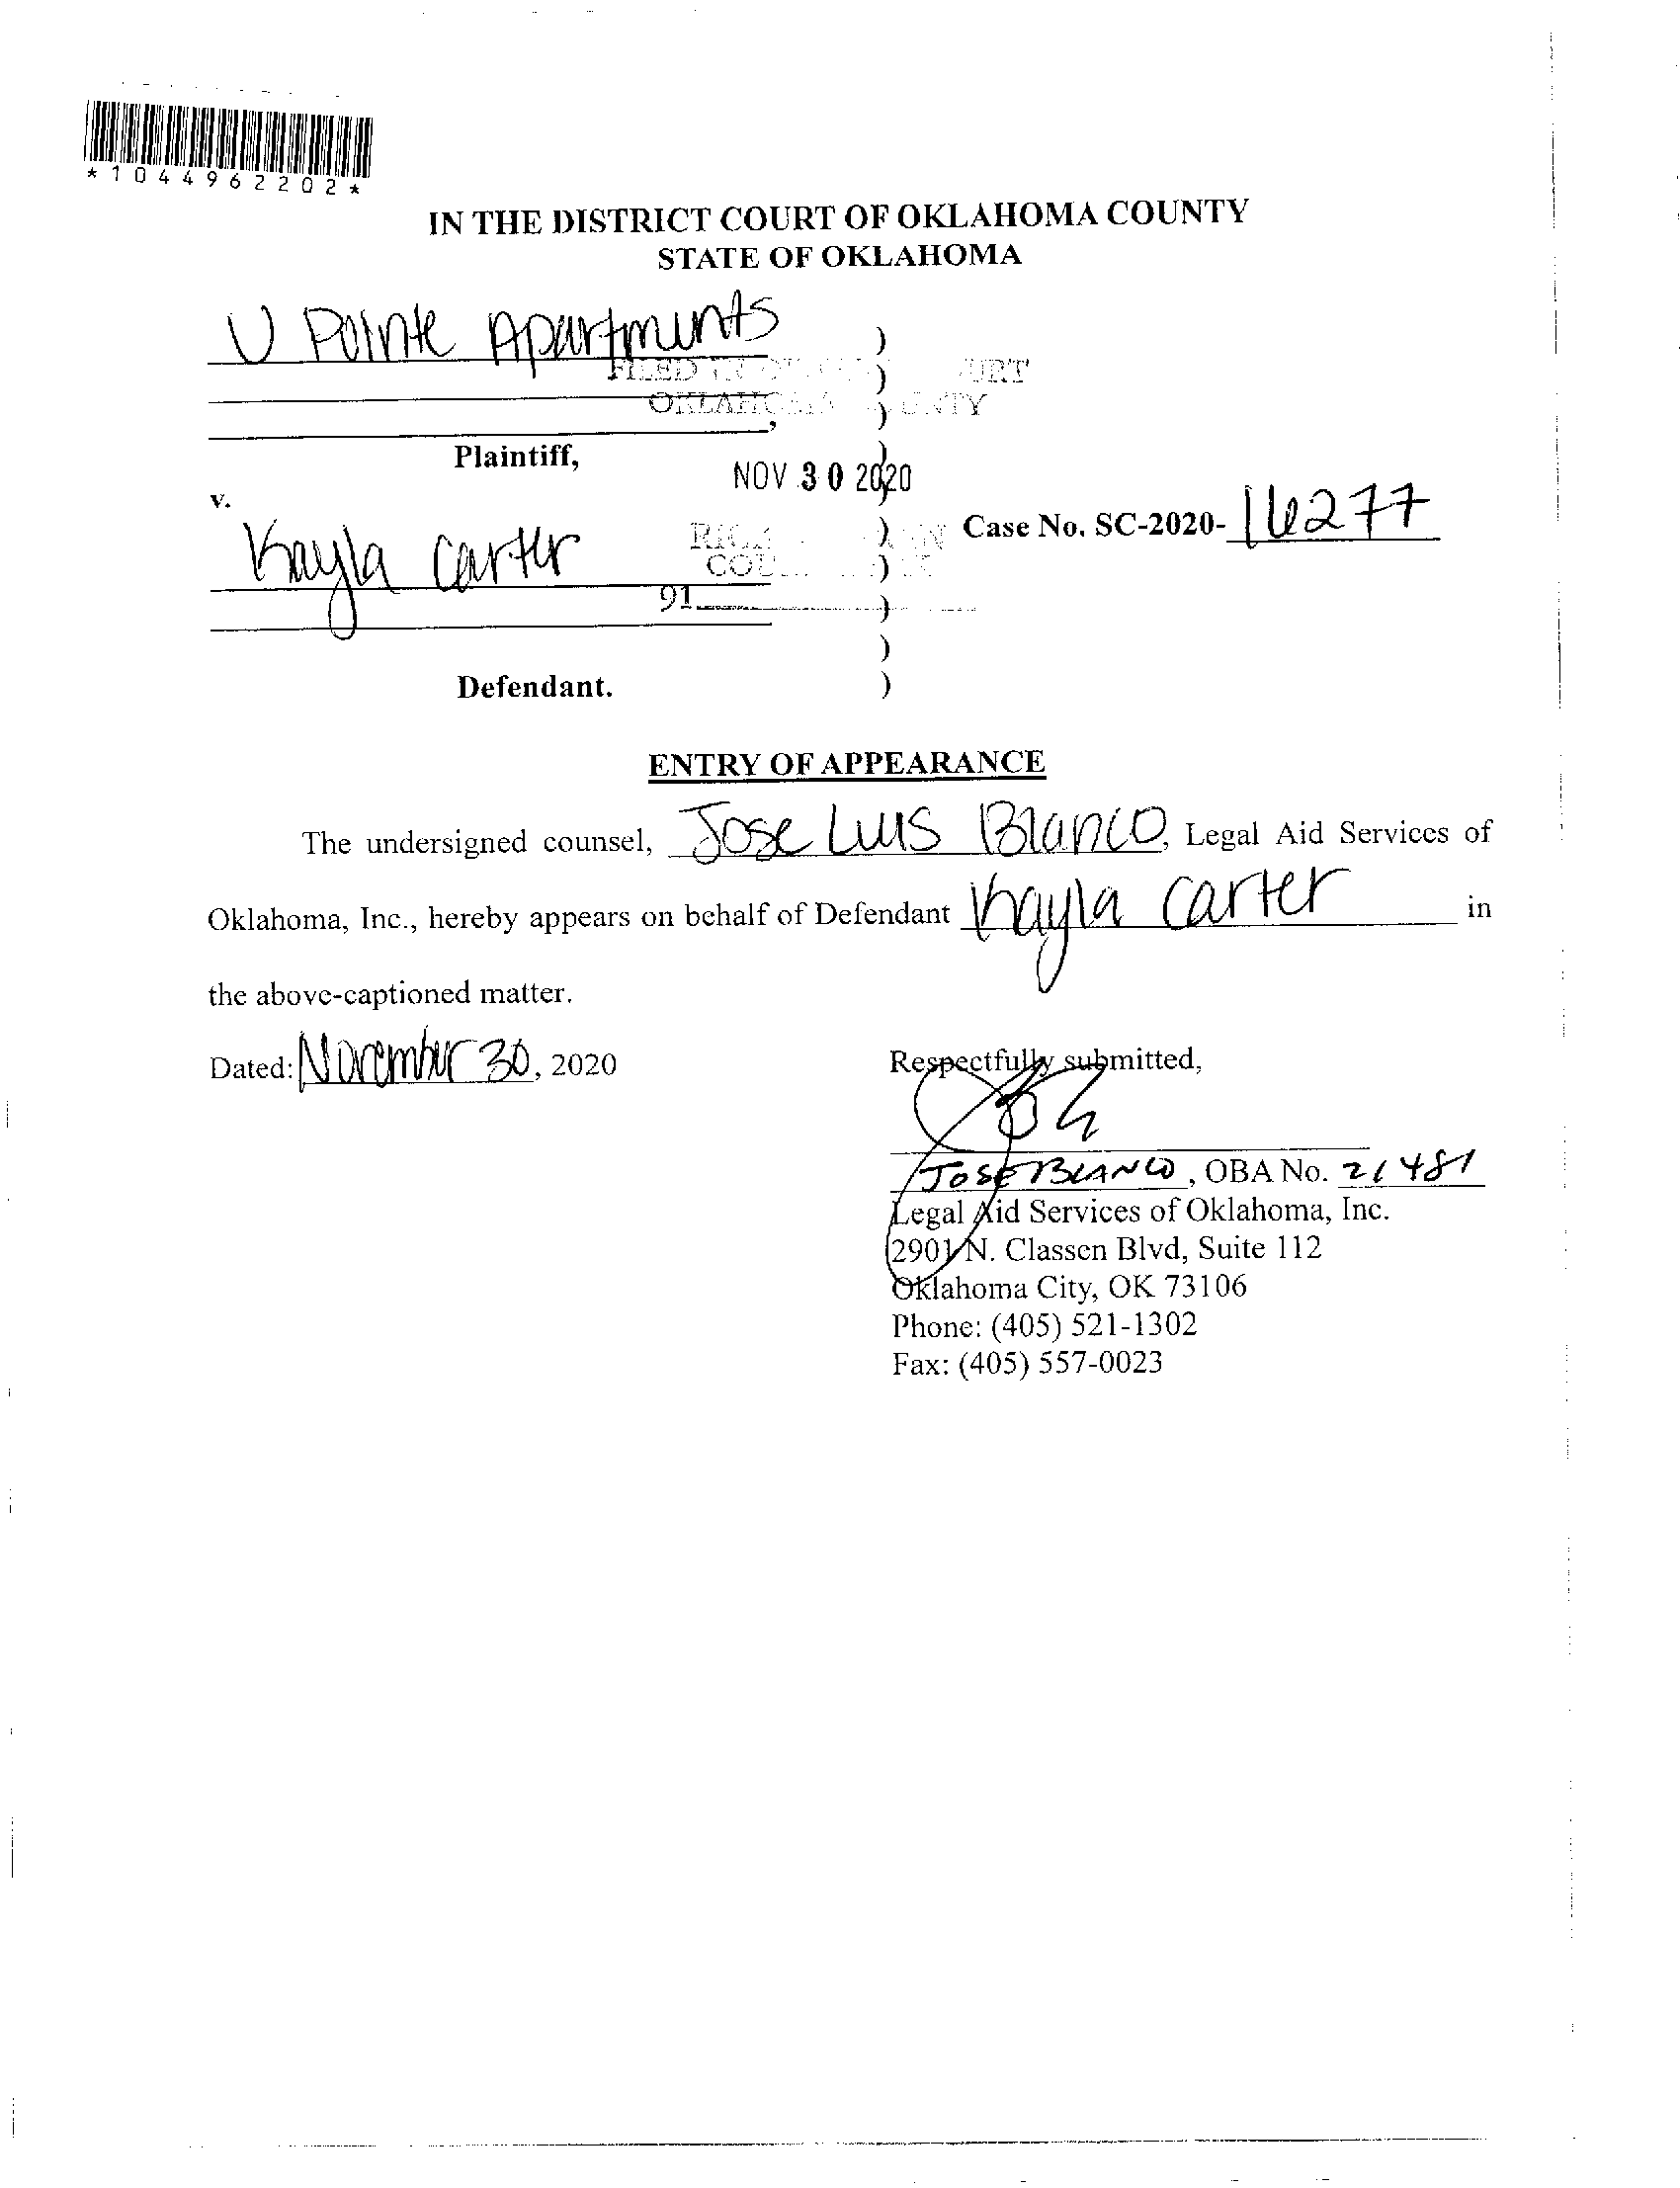 *1044962202*
IN THE DISTRICT COURT OF OKLAHOMA COUNTY
STATE OF OKLAHOMA
U Pointe Apartments )
FILED IN ) URT
OKLAHOMA , ) UNTY
Plaintiff, )
NOV 30 2020
v.
Kayla Carter ) Case No. SC-2020-16277
COU )
91 )
)
Defendant. )
ENTRY OF APPEARANCE
The undersigned counsel, Jose Luis Blanco, Legal Aid Services of
Oklahoma, Inc., hereby appears on behalf of Defendant Kayla Carter in
the above-captioned matter.
Dated: November 30, 2020 Respectfully submitted,
JOSE BLANCO, OBA No. 21481
Legal Aid Services of Oklahoma, Inc.
2901 N. Classen Blvd, Suite 112
Oklahoma City, OK 73106
Phone: (405) 521-1302
Fax: (405) 557-0023